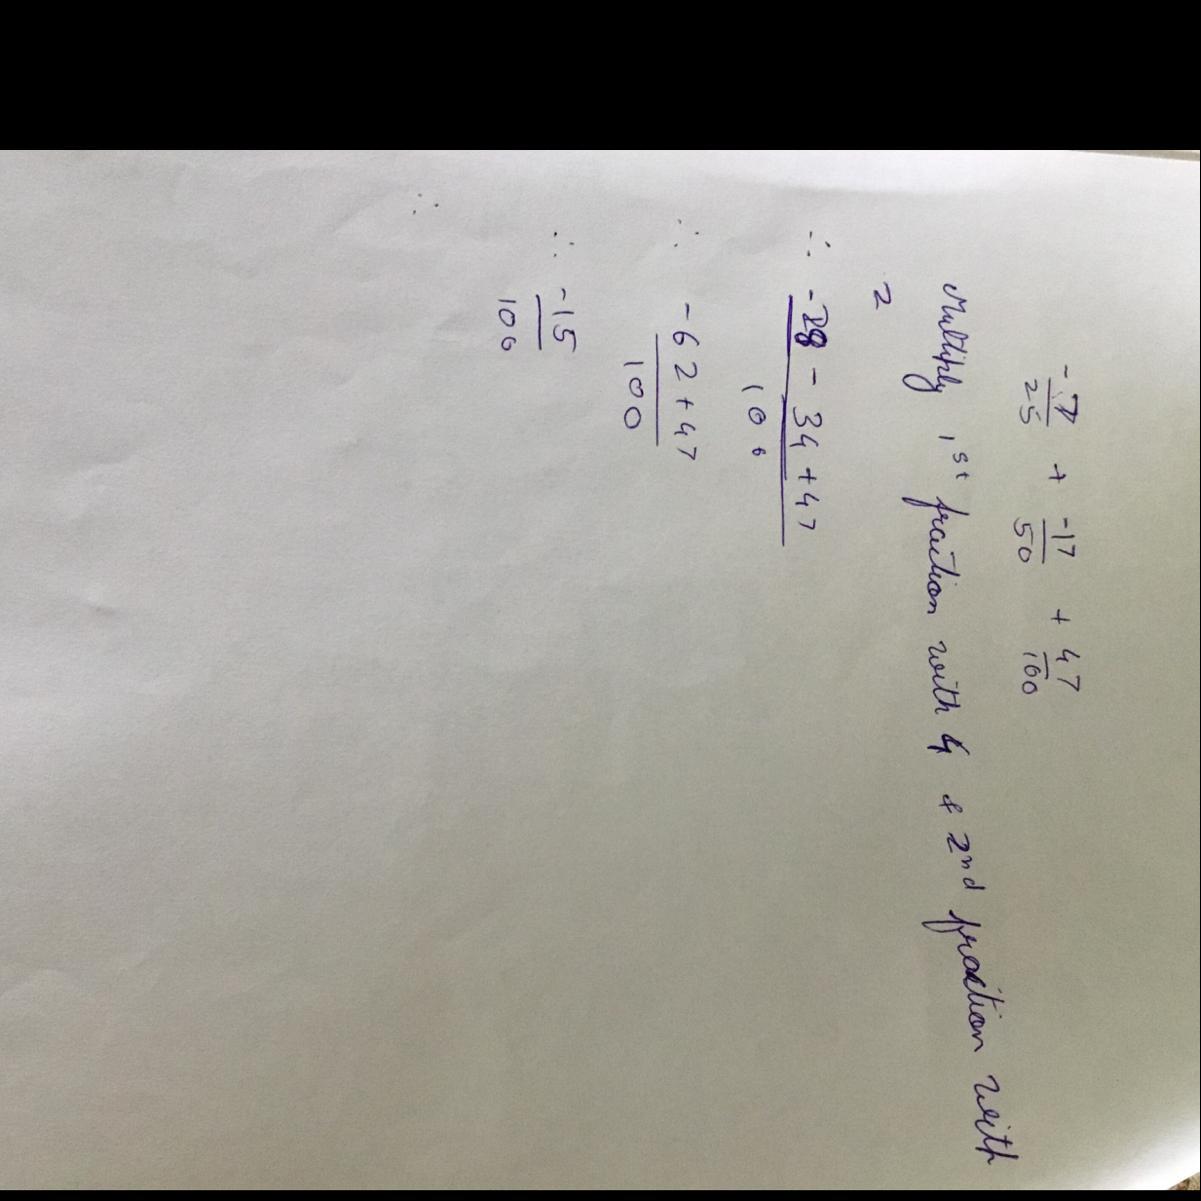 -7/25 + -17/50 + 47/100
Multiply 1st fraction with 4 & 2nd fraction with
2
∴ -28 - 34 + 47 / 100
∴ -62 + 47 / 100
∴ -15 / 100
∴